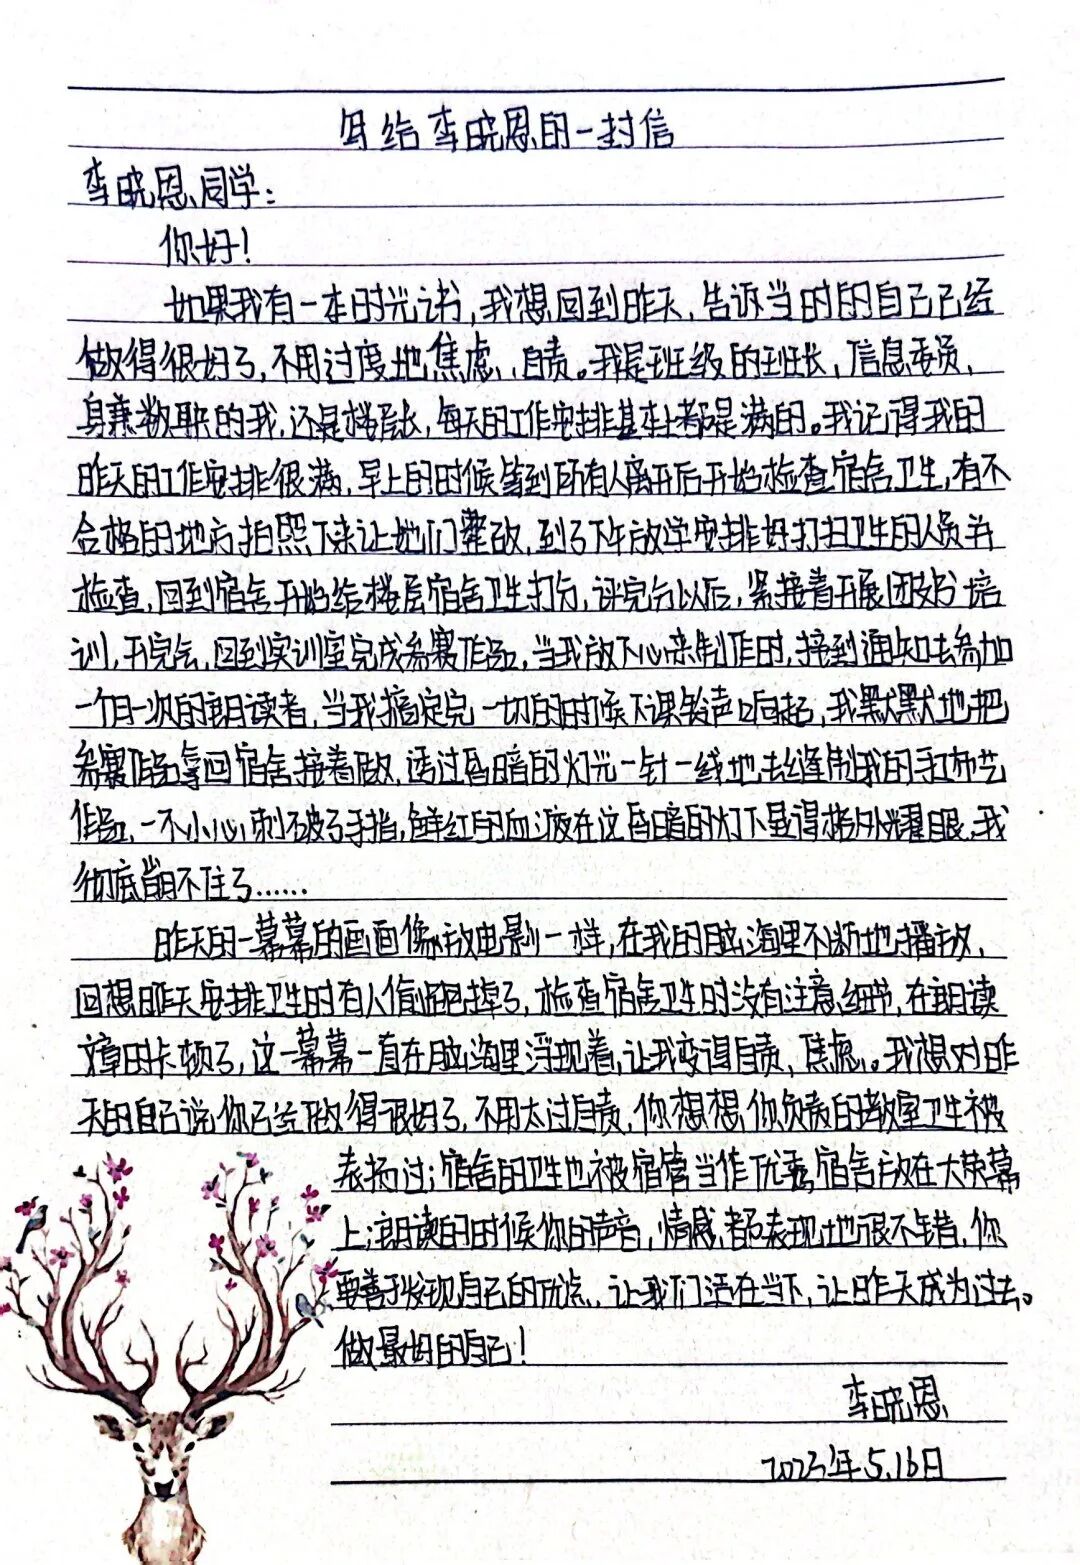 写给李晓恩的一封信
李晓恩同学：
你好！
如果我有一本时光书，我想回到昨天，告诉当时的自己已经
做得很好了，不用过度地焦虑，自责。我是班级的班长，信息委员，
身兼数职的我，还是楼层长，每天的工作安排基本上都是满的。我记得我的
昨天的工作安排很满，早上的时候等到所有人离开后开始检查宿舍卫生，有不
合格的地方拍照下来让她们整改，到了下午放学安排好打扫卫生的人员并
检查，回到宿舍开始给楼层宿舍卫生打分，评完分以后，紧接着开展团支书培
训，开完会，回到实训室完成参赛作品，当我放下心来制作时，接到通知去参加
一个月一次的朗读者，当我搞定完一切的时候下课铃声响起，我默默地把
参赛作品拿回宿舍接着做，透过昏暗的灯光一针一线地去缝制我的手工布艺
作品，一不小心刺破了手指，鲜红的血液在这昏暗的灯下显得格外耀眼，我
彻底绷不住了……
昨天的一幕幕的画面像放电影一样，在我的脑海里不断地播放，
回想昨天安排卫生时有人偷偷跑掉了，检查宿舍卫生时没有注意细节，在朗读
文章时卡顿了，这一幕幕一直在脑海里浮现着，让我变得自责，焦虑。我想对昨
天的自己说你已经做得很好了，不用太过自责，你想想你负责的教室卫生被
表扬过；宿舍的卫生也被宿管当作优秀宿舍放在大荧幕
上；朗读的时候你的声音，情感，都表现地很不错，你
要善于发现自己的优点，让我们活在当下，让昨天成为过去。
做最好的自己！
李晓恩
2023年5.16日